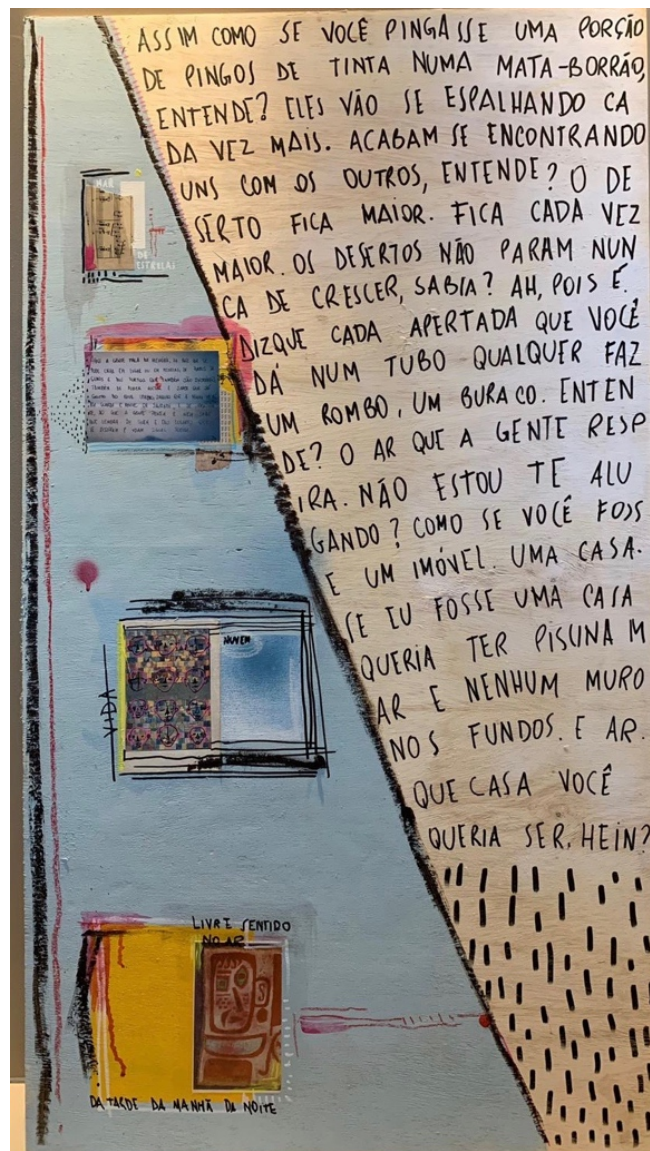 ASSIM COMO SE VOCÊ PINGASSE UMA PORÇÃO
DE PINGOS DE TINTA NUMA MATA-BORRÃO,
ENTENDE? ELES VÃO SE ESPALHANDO CA
DA VEZ MAIS. ACABAM SE ENCONTRANDO
UNS COM OS OUTROS, ENTENDE? O DE
SERTO FICA MAIOR. FICA CADA VEZ
MAIOR. OS DESERTOS NÃO PARAM NUN
CA DE CRESCER, SABIA? AH, POIS É.
DIZQUE CADA APERTADA QUE VOCÊ
DÁ NUM TUBO QUALQUER FAZ
UM ROMBO, UM BURACO. ENTEN
DE? O AR QUE A GENTE RESP
IRA. NÃO ESTOU TE ALU
GANDO? COMO SE VOCÊ FOSS
E UM IMÓVEL. UMA CASA.
SE EU FOSSE UMA CASA
QUERIA TER PISCINA M
AR E NENHUM MURO
NOS FUNDOS. E AR.
QUE CASA VOCÊ
QUERIA SER, HEIN?
MAR
DE
ESTRELAS
VIDA
NUVEM
LIVRE SENTIDO
NO AR
DA TARDE DA MANHÃ DA NOITE